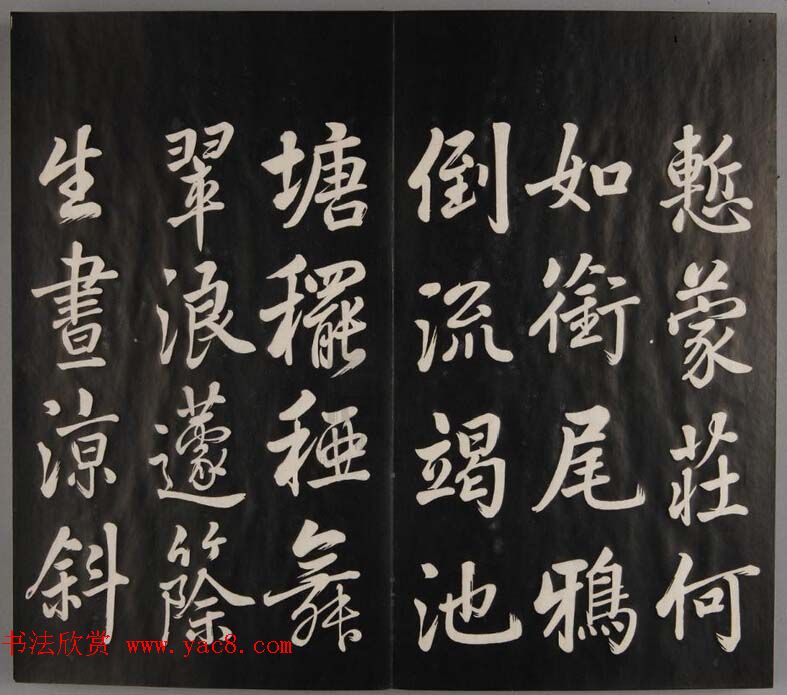 慙蒙莊何
如銜尾鴉
倒流竭池
塘䆉稏舞
翠浪蘧篨
生晝涼斜
书法欣赏 www.yac8.com